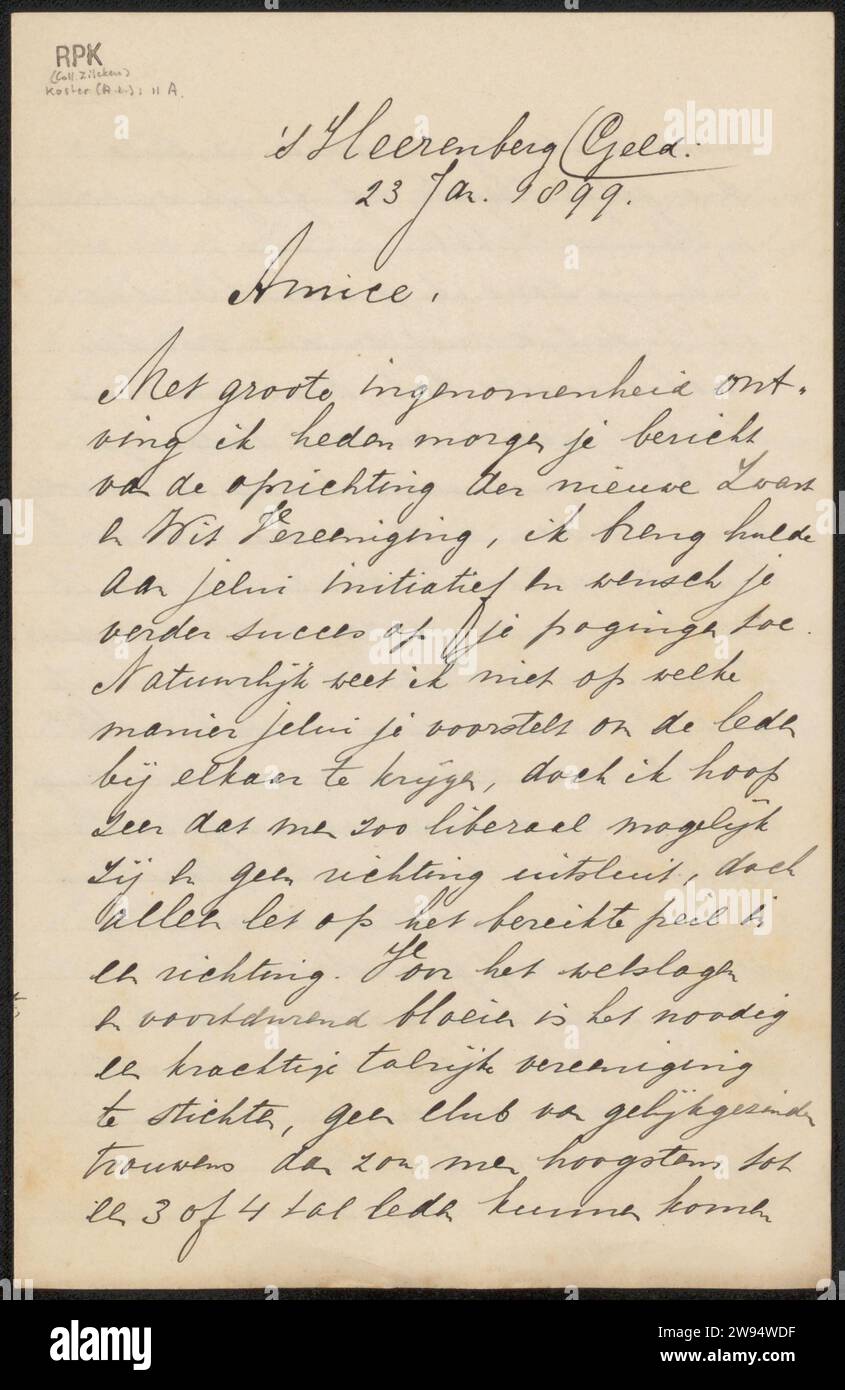 RPK
(Coll. Zilcken)
Koster (A.L.): 11 A.
's Heerenberg (Geld:
23 Jan. 1899.
Amice,
Met groote ingenomenheid ont-
ving ik heden morgen je bericht
van de oprichting der nieuwe Zwart
en Wit Vereeniging, ik breng hulde
aan jelui initiatief en wensch je
verder succes op je pogingen toe.
Natuurlijk weet ik niet op welke
manier jelui je voorstelt om de leden
bij elkaar te krijgen, doch ik hoop
zeer dat men zoo liberaal mogelijk
zij en geen richting uitsluit, doch
alleen let op het bereikte peil in
een richting. Voor het welslagen
en voortdurend bloeien is het noodig
een krachtige talrijke vereeniging
te stichten, geen club van gelijkgezinden
trouwens dan zou men hoogstens tot
een 3 of 4 tal leden kunnen komen
alamy
2W94WDF
www.alamy.com